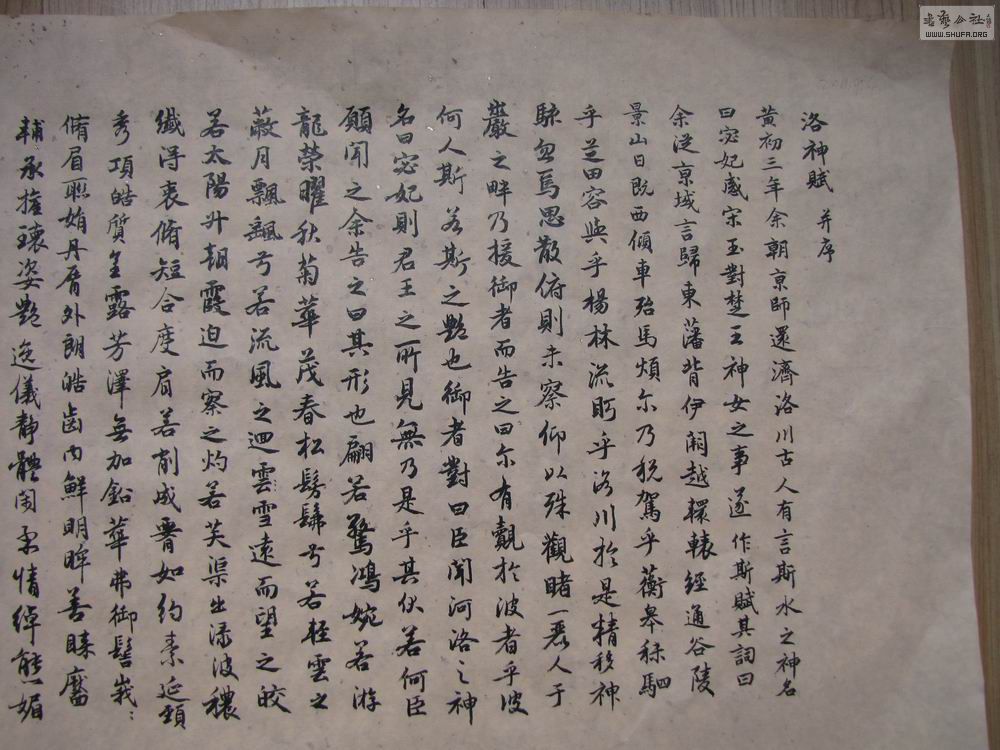 洛神賦 并序
黃初三年余朝京師還濟洛川古人有言斯水之神名
曰宓妃感宋玉對楚王神女之事遂作斯賦其詞曰
余從京域言歸東藩背伊闕越轘轅經通谷陵
景山日既西傾車殆馬煩尔乃稅駕乎蘅皋秣駟
乎芝田容與乎楊林流眄乎洛川於是精移神
駭忽焉思散俯則未察仰以殊觀睹一麗人于
巖之畔乃援御者而告之曰尔有覿於波者乎彼
何人斯若斯之艷也御者對曰臣聞河洛之神
名曰宓妃則君王之所見無乃是乎其狀若何臣
願聞之余告之曰其形也翩若驚鴻婉若游
龍榮曜秋菊華茂春松髣髴兮若輕雲之
蔽月飄颻兮若流風之迴雪遠而望之皎
若太陽升朝霞迫而察之灼若芙渠出淥波穠
纖得衷脩短合度肩若削成腰如約素延頸
秀項皓質呈露芳澤無加鉛華弗御髻峩:
脩眉聯娟丹脣外朗皓齒內鮮明眸善睞靨
輔承權瓌姿艷逸儀靜體閑柔情綽態媚
書藝公社
WWW.SHUFA.ORG